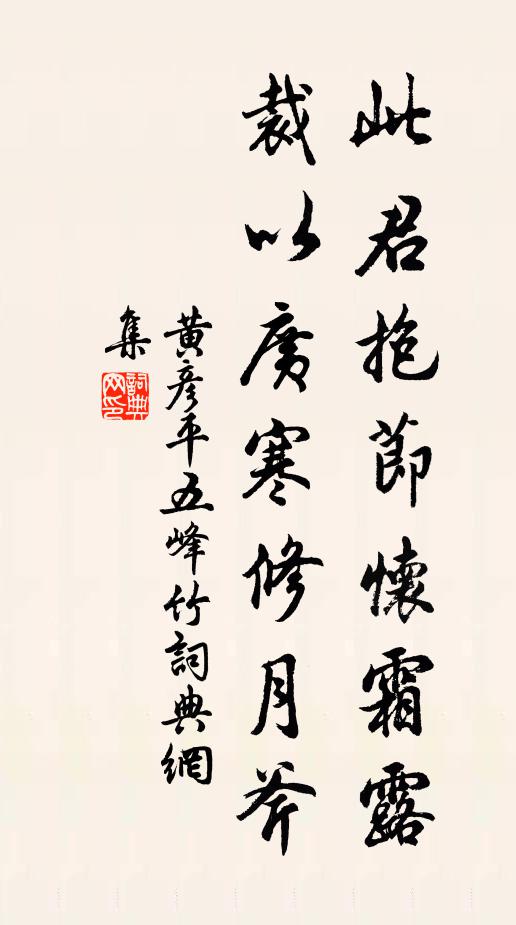 此君抱節懷霜露
裁以廣寒修月斧
黃彥平五峰竹詞典網
集
詞典
网印